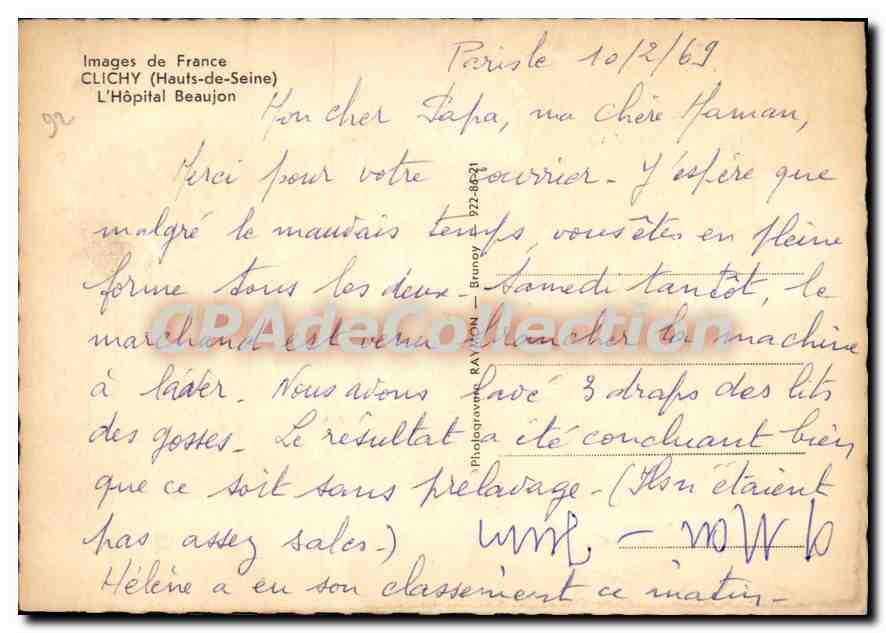 Images de France
CLICHY (Hauts-de-Seine)
L'Hôpital Beaujon
92
Paris le 10/2/69
Mon cher Papa, ma chère Maman,
Merci pour votre courrier - J'espère que
malgré le mauvais temps, vous êtes en pleine
forme tous les deux - Samedi tantôt, le
marchand est venu brancher la machine
à laver. Nous avons lavé 3 draps des lits
des gosses - Le résultat a été concluant bien
que ce soit sans prelavage - (Ils n'étaient
pas assez sales -)
Hélène a eu son classement ce matin -
Photogravure RAYMON — Brunoy 922-86-21
CPAdeCollection.com